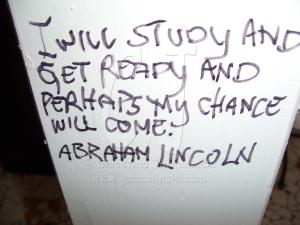 I WILL STUDY AND
GET READY AND
PERHAPS MY CHANCE
WILL COME.
ABRAHAM LINCOLN
www.jarmolinski.com